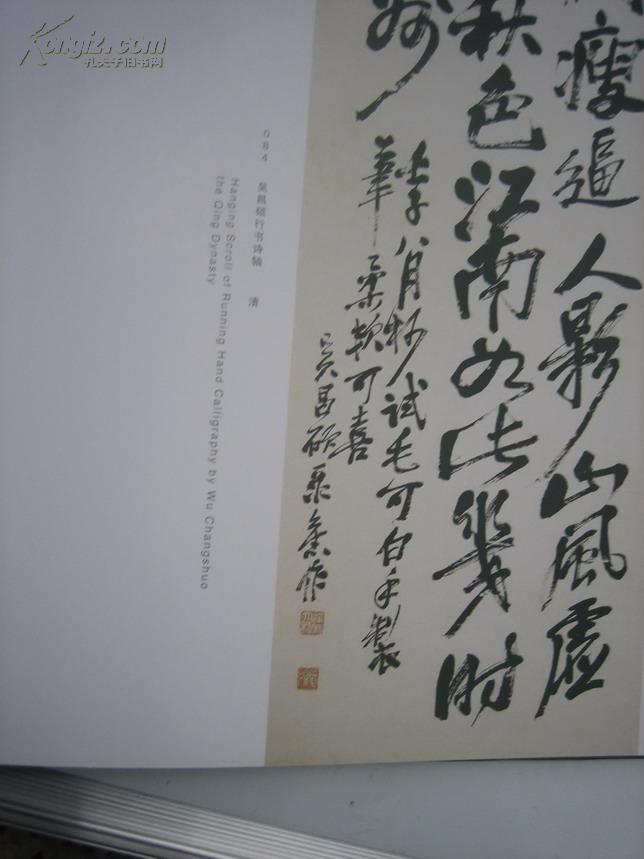 瘦逼人影山風虛
秋色江南如此幾時
壬子八月杪試毛可白手製
筆柔軟可喜
吳昌碩
084 吴昌硕行书诗轴 清
Hanging Scroll of Running Hand Calligraphy by Wu Changshuo
the Qing Dynasty
Kongfz.com
孔夫子旧书网